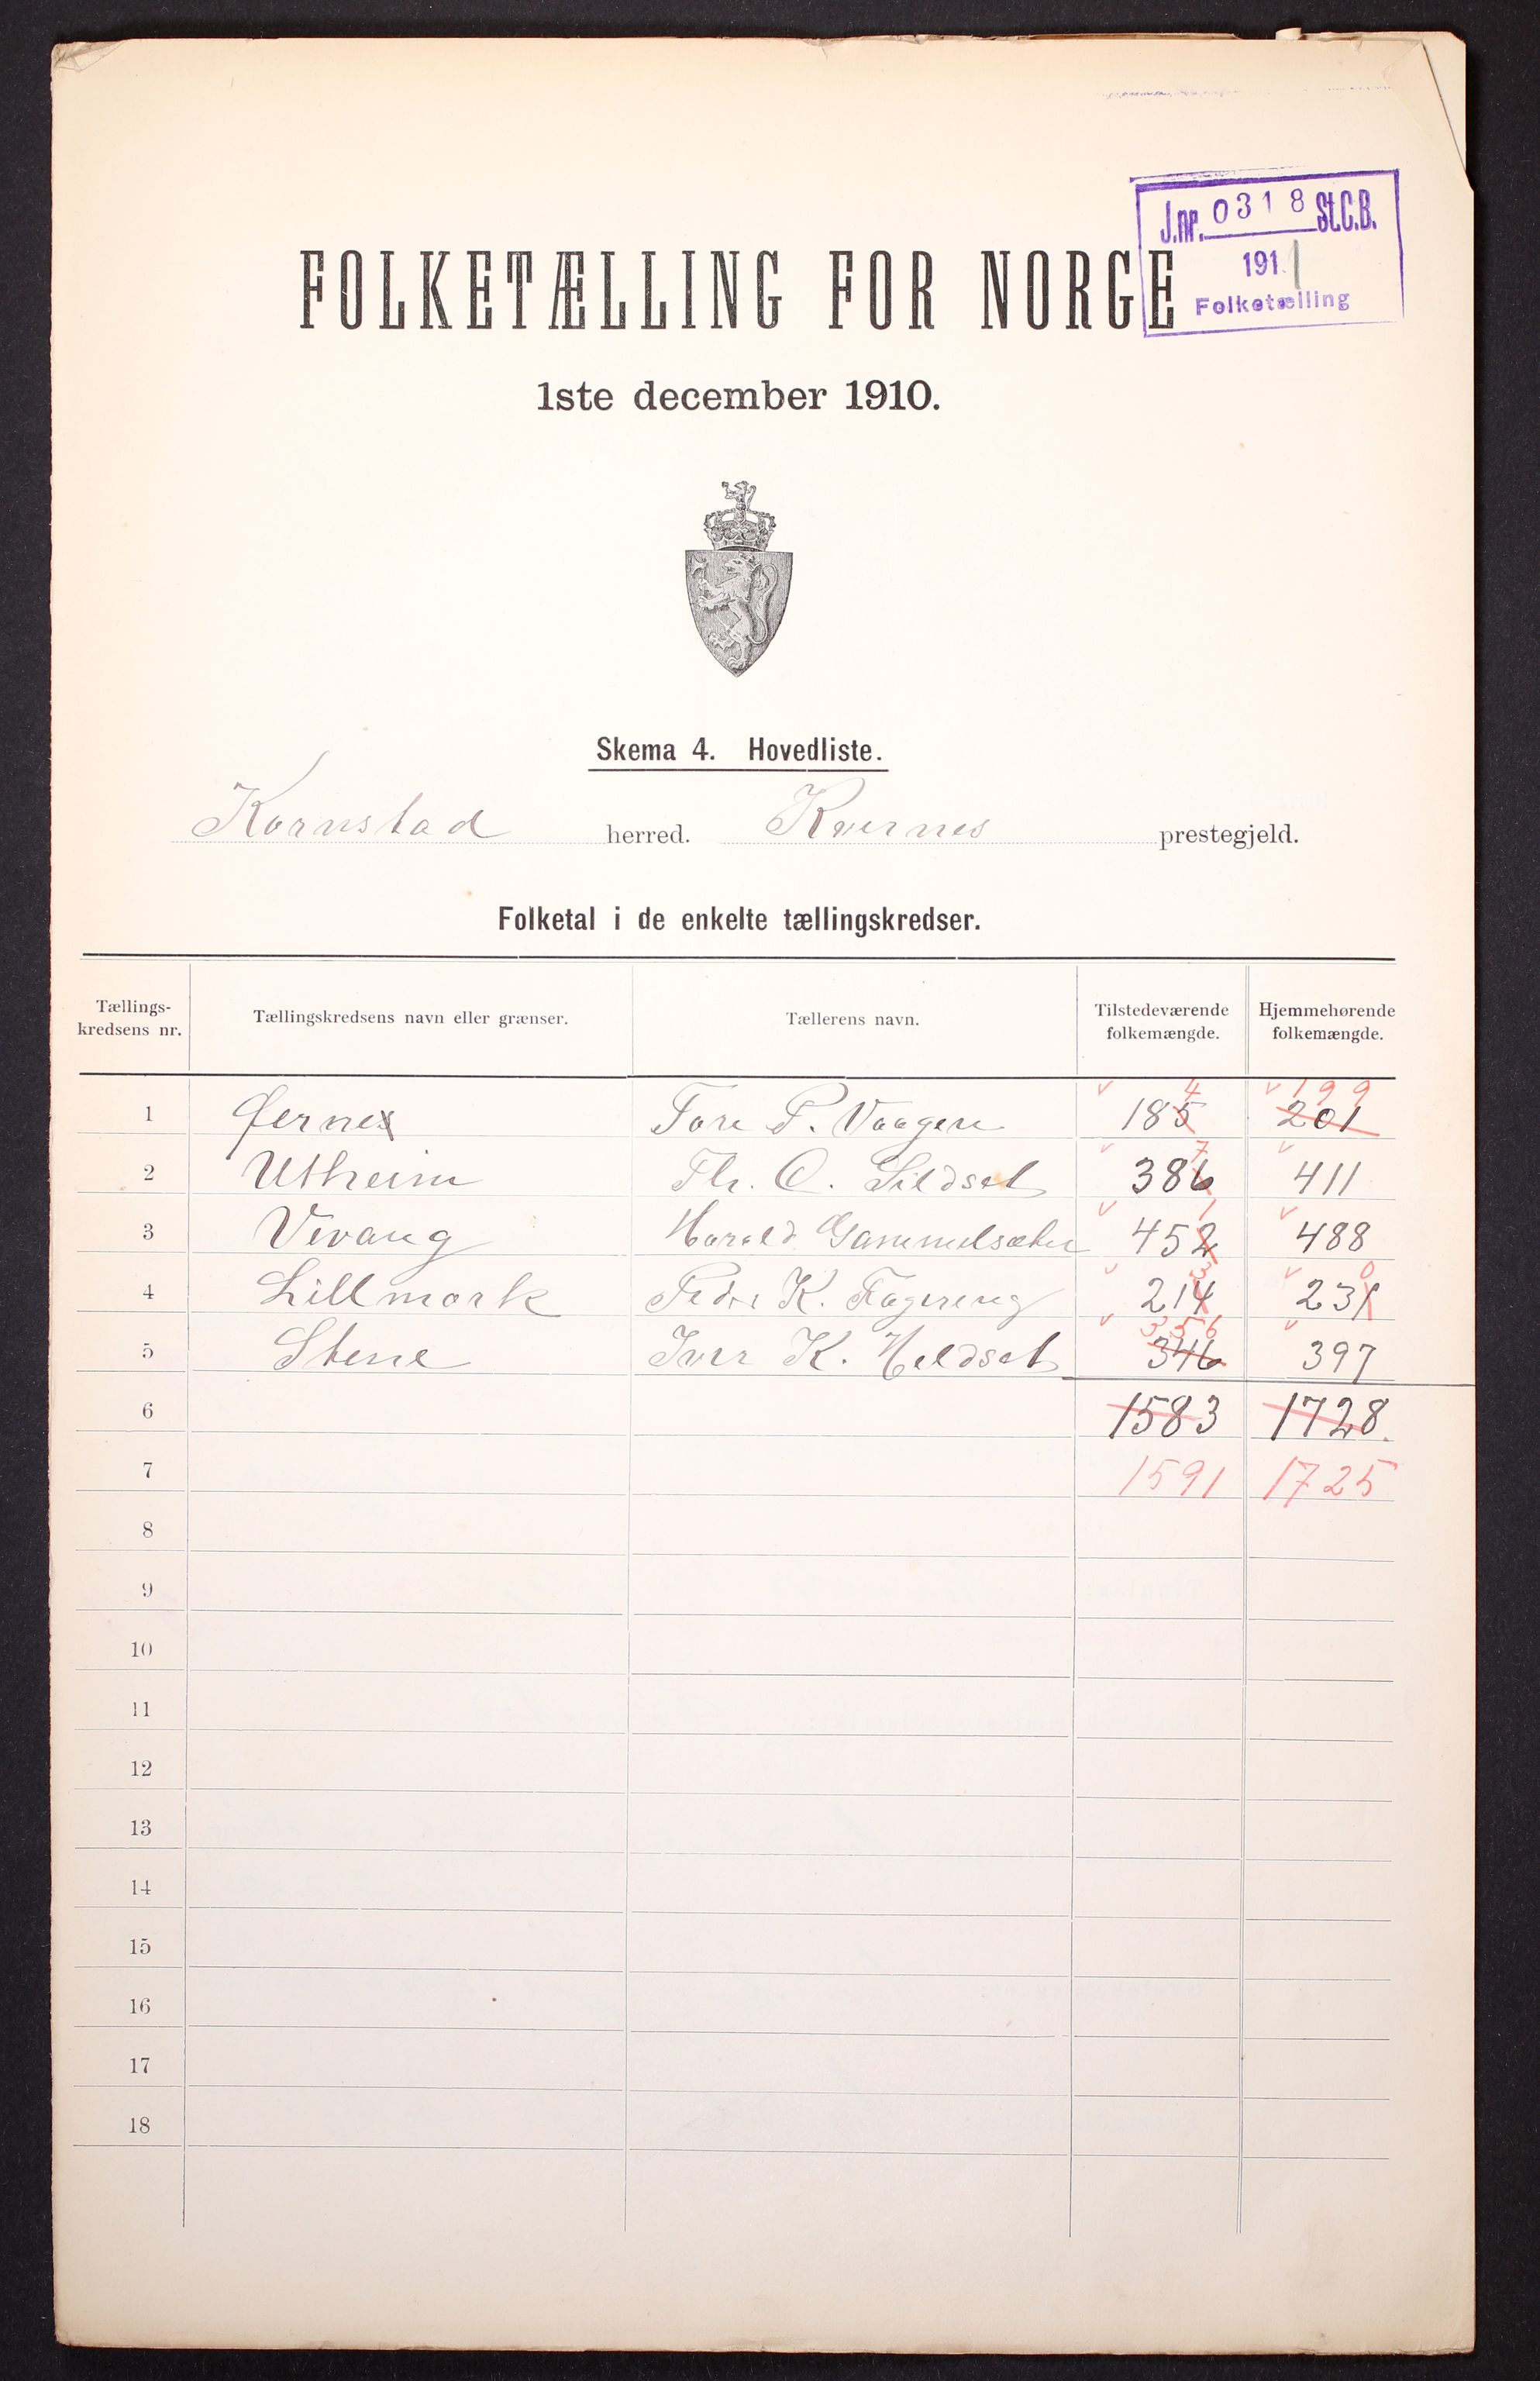 J.nr. 0318 St.C.B.
1911
Folketælling
FOLKETÆLLING FOR NORGE
1ste december 1910.
Skema 4. Hovedliste.
Kornstad herred. Kvernes prestegjeld.
Folketal i de enkelte tællingskredser.
Tællings-kredsens nr. Tællingskredsens navn eller grænser. Tællerens navn. Tilstedeværende folkemængde. Hjemmehørende folkemængde.
4 199
1 Øerne Tore P. Vaagen 185 201
7
2 Utheim Th. O. Sildset 386 411
1
3 Vevang Harald Gammelsæter 452 488
3 0
4 Lillmork Peder K. Fagereng 214 231
356
5 Stene Iver K. Heldset 346 397
6 1583 1728.
7 1591 1725
8
9
10
11
12
13
14
15
16
17
18